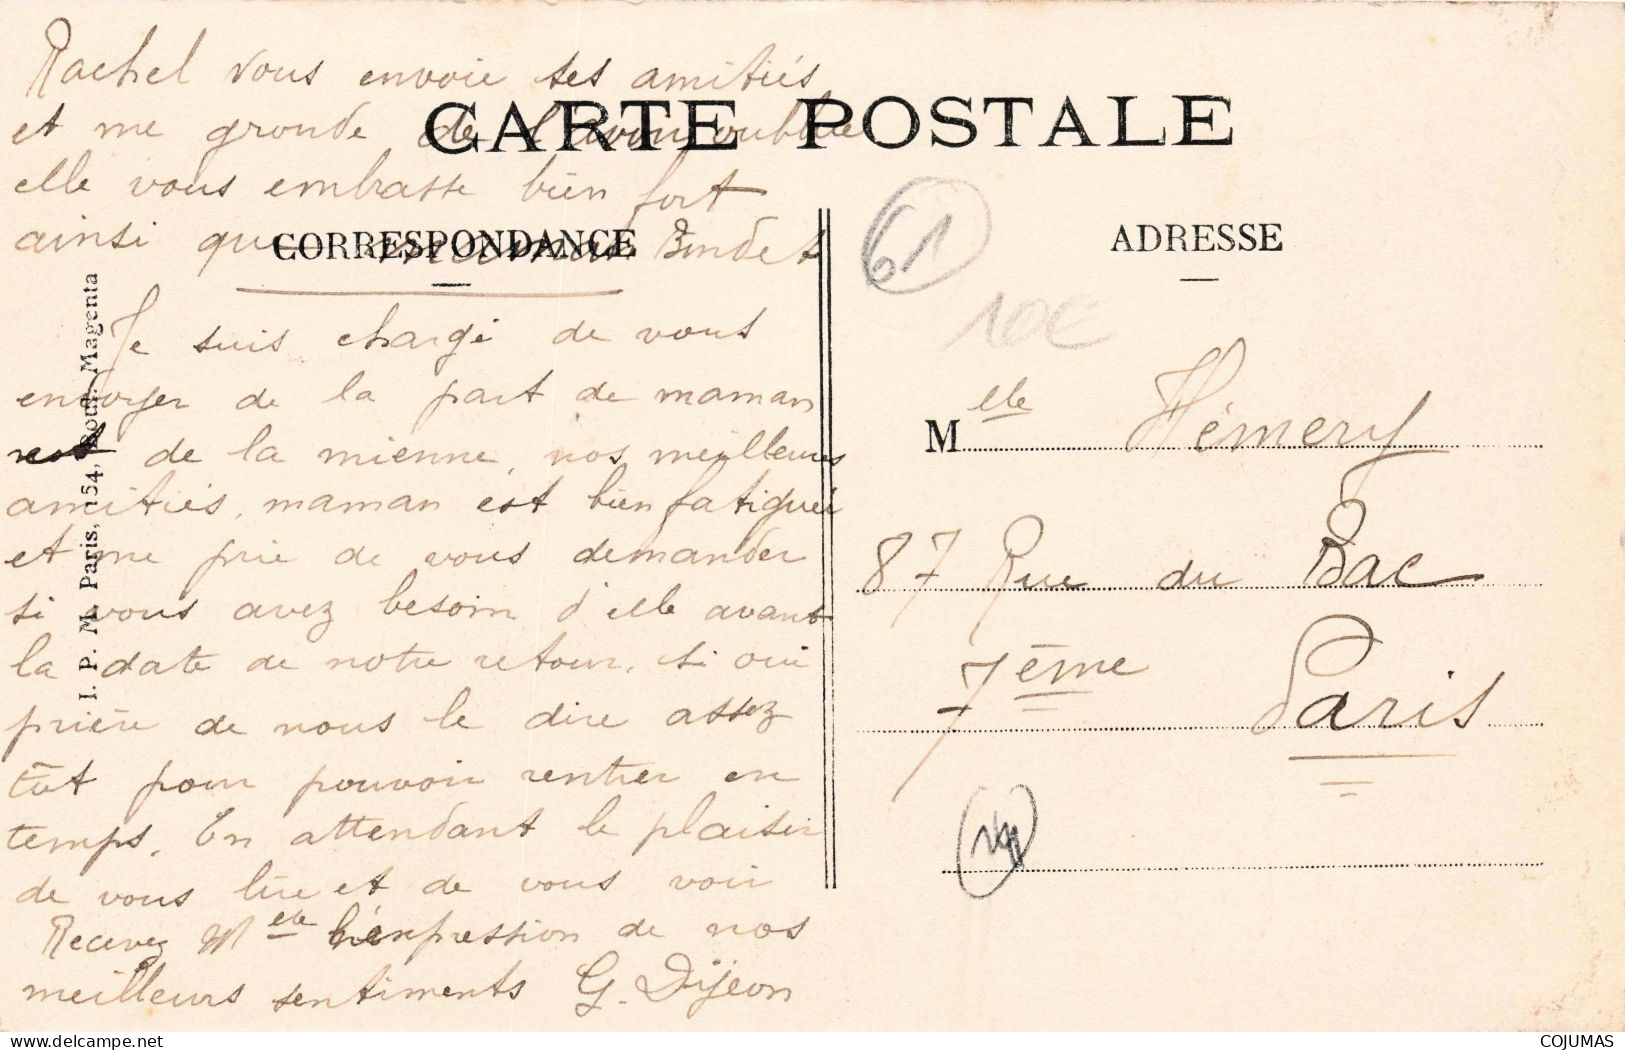 Rachel vous envoie ses amitiés
et me gronde de l'avoir oubliée
elle vous embrasse bien fort
ainsi que maman Bindet
CARTE POSTALE
CORRESPONDANCE
Je suis chargé de vous
envoyer de la part de maman
et de la mienne, nos meilleures
amitiés, maman est bien fatiguée
et me prie de vous demander
si vous avez besoin d'elle avant
la date de notre retour, si oui
prière de nous le dire assez
tôt pour pouvoir rentrer en
temps. En attendant le plaisir
de vous lire et de vous voir
Recevez Melle l'expression de nos
meilleurs sentiments G. Dijeon
I. P. M. Paris, 154, Boul. Magenta
ADRESSE
61
10€
Melle Hémery
87 Rue du Bac
7ème Paris
COJUMAS